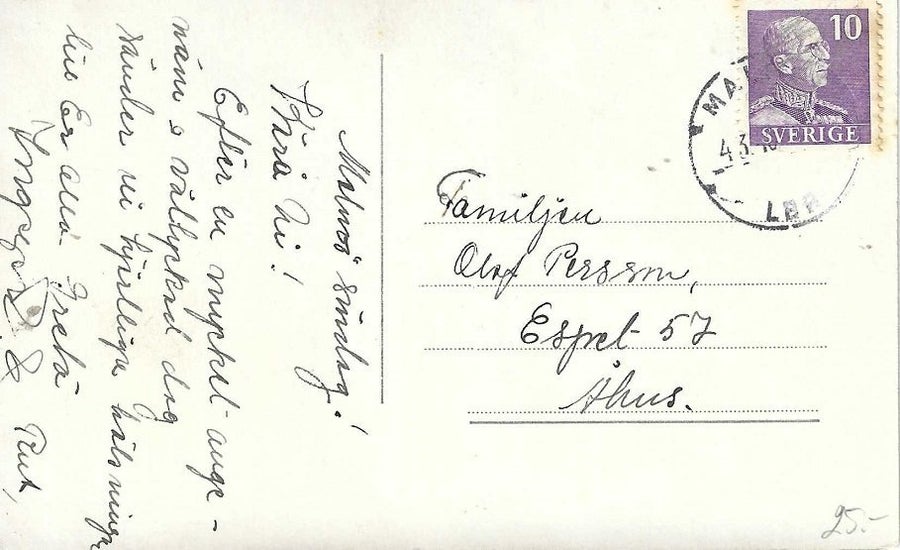 Malmö söndag!
Kära Ni!
Efter en mycket ange-
näm o vällyckad dag
sänder vi hjärtliga hälsningar
till Er alla Greta
Ingegerd & Rut,
10
SVERIGE
MA
4.3.
LBR
Familjen
Olof Persson,
Espet 57
Åhus.
25.-